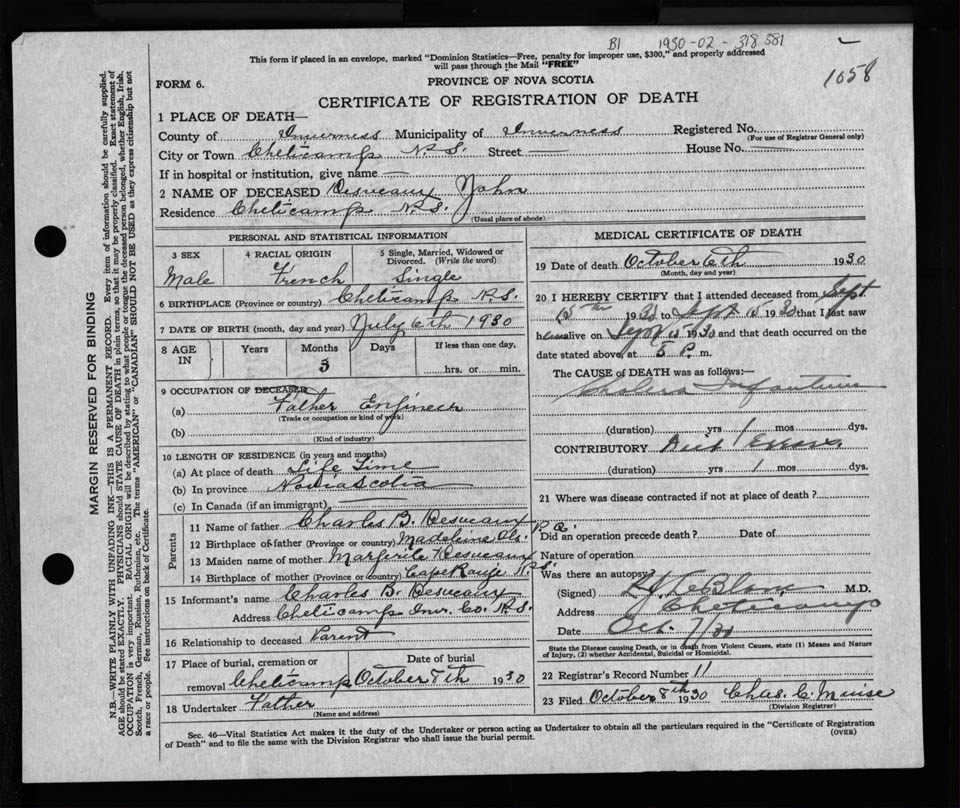 B1 1930-02-318581
1058
This form if placed in an envelope, marked "Dominion Statistics—Free, penalty for improper use, $300," and properly addressed
will pass through the Mail "FREE"
FORM 6.
PROVINCE OF NOVA SCOTIA
CERTIFICATE OF REGISTRATION OF DEATH
1 PLACE OF DEATH—
County of Inverness Municipality of Inverness Registered No.
(For use of Registrar General only)
City or Town Cheticamp N.S. Street — House No. —
If in hospital or institution, give name —
2 NAME OF DECEASED Desveaux John
Residence Cheticamp N.S.
(Usual place of abode)
PERSONAL AND STATISTICAL INFORMATION
3 SEX 4 RACIAL ORIGIN 5 Single, Married, Widowed or
Divorced. (Write the word)
Male French Single
6 BIRTHPLACE (Province or country) Cheticamp N.S.
7 DATE OF BIRTH (month, day and year) July 6th 1930
8 AGE IN Years Months Days If less than one day,
3 hrs. or min.
9 OCCUPATION OF DECEASED
(a) Father Engineer
(Trade or occupation or kind of work)
(b)
(Kind of industry)
10 LENGTH OF RESIDENCE (in years and months)
(a) At place of death Life Time
(b) In province Nova Scotia
(c) In Canada (if an immigrant) —
Parents
11 Name of father Charles B. Desveaux
12 Birthplace of father (Province or country) Madeleine Isls. P.Q.
13 Maiden name of mother Margerite Desveaux
14 Birthplace of mother (Province or country) Cape Rouge N.S.
15 Informant's name Charles B. Desveaux
Address Cheticamp Inv. Co. N.S.
16 Relationship to deceased Parent
17 Place of burial, cremation or Date of burial
removal Cheticamp October 8th 1930
18 Undertaker Father
(Name and address)
MEDICAL CERTIFICATE OF DEATH
19 Date of death October 6th 1930
(Month, day and year)
20 I HEREBY CERTIFY that I attended deceased from Sept
15th 1930 to Sept 15 1930 that I last saw
him alive on Sept 15 1930 and that death occurred on the
date stated above at 5 P. m.
The CAUSE of DEATH was as follows:—
Cholera Infantum
(duration) yrs 1 mos dys.
CONTRIBUTORY Diet
(duration) yrs 1 mos dys.
21 Where was disease contracted if not at place of death?
Did an operation precede death? Date of
Nature of operation
Was there an autopsy?
(Signed) LeBlanc M.D.
Address Cheticamp
Date Oct. 7/30
State the Disease causing Death, or in death from Violent Causes, state (1) Means and Nature
of Injury, (2) whether Accidental, Suicidal or Homicidal.
22 Registrar's Record Number 11
23 Filed October 8th 1930 Chas. C. Muise
(Division Registrar)
Sec. 46—Vital Statistics Act makes it the duty of the Undertaker or person acting as Undertaker to obtain all the particulars required in the "Certificate of Registration
of Death" and to file the same with the Division Registrar who shall issue the burial permit.
(OVER)
MARGIN RESERVED FOR BINDING
N.B.—WRITE PLAINLY WITH UNFADING INK—THIS IS A PERMANENT RECORD. Every item of information should be carefully supplied.
AGE should be stated EXACTLY. PHYSICIANS should STATE CAUSE OF DEATH in plain terms, so that it may be properly classified. Exact statement of
OCCUPATION is very important. RACIAL ORIGIN will be described by stating to what people or tongue the deceased person belonged, whether English, Irish,
Scotch, French, German, Russian, Ruthenian, etc. The terms "AMERICAN" or "CANADIAN" SHOULD NOT BE USED as they express citizenship but not
a race or people. See instructions on back of Certificate.